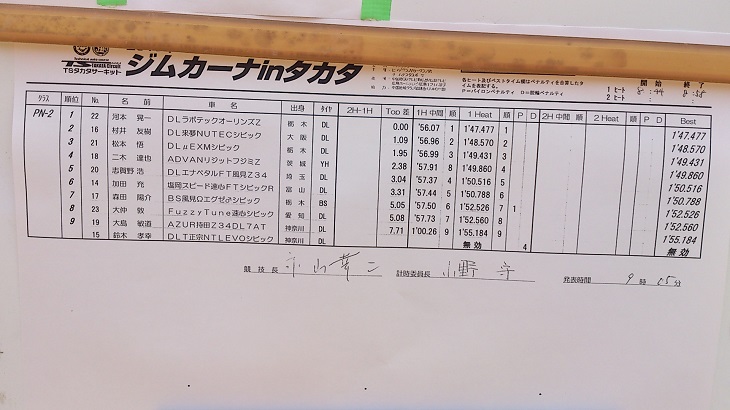 TSタカタサーキット
ジムカーナinタカタ
各ヒート及びベストタイム欄はペナルティを合算したタイムを表記する。
P=パイロンペナルティ D=脱輪ペナルティ
開始 終了
1ヒート 8:44 8:58
2ヒート
クラス 順位 No. 名前 車名 出身 タイヤ 2H-1H Top差 1H中間 順 1 Heat 順 P D 2H中間 順 2 Heat 順 P D Best
PN-2 1 22 河本 晃一 DLラボテックオーリンズZ 栃木 DL 0.00 '56.07 1 1'47.477 1 1'47.477
2 16 村井 友樹 DL来夢NUTECシビック 大阪 DL 1.09 '56.96 2 1'48.570 2 1'48.570
3 21 松本 悟 DLμEXMシビック 栃木 DL 1.95 '56.99 3 1'49.431 3 1'49.431
4 18 二木 達也 ADVANリジットフジミZ 茨城 YH 2.38 '57.91 8 1'49.860 4 1'49.860
5 20 志賀野 浩 DLエナペタルFT風見Z34 埼玉 DL 3.04 '57.37 4 1'50.516 5 1'50.516
6 14 加田 充 塩岡スピード速心FTシビックR 富山 DL 3.31 '57.44 5 1'50.788 6 1'50.788
7 17 森田 陽介 BS風見Ωエグゼ♂シビック 栃木 BS 5.05 '57.50 6 1'52.526 7 1 1'52.526
8 23 大仲 敦 FuzzyTune速心シビック 愛知 DL 5.08 '57.73 7 1'52.560 8 1'52.560
9 19 大島 敏道 AZUR持田Z34DL7AT 神奈川 DL 7.71 1'00.26 9 1'55.184 9 1'55.184
15 鈴木 孝幸 DLT正宗NTLEVOシビック 神奈川 DL 無効 4 無効
競技長 計時委員長 小野 守 発表時間 9時05分